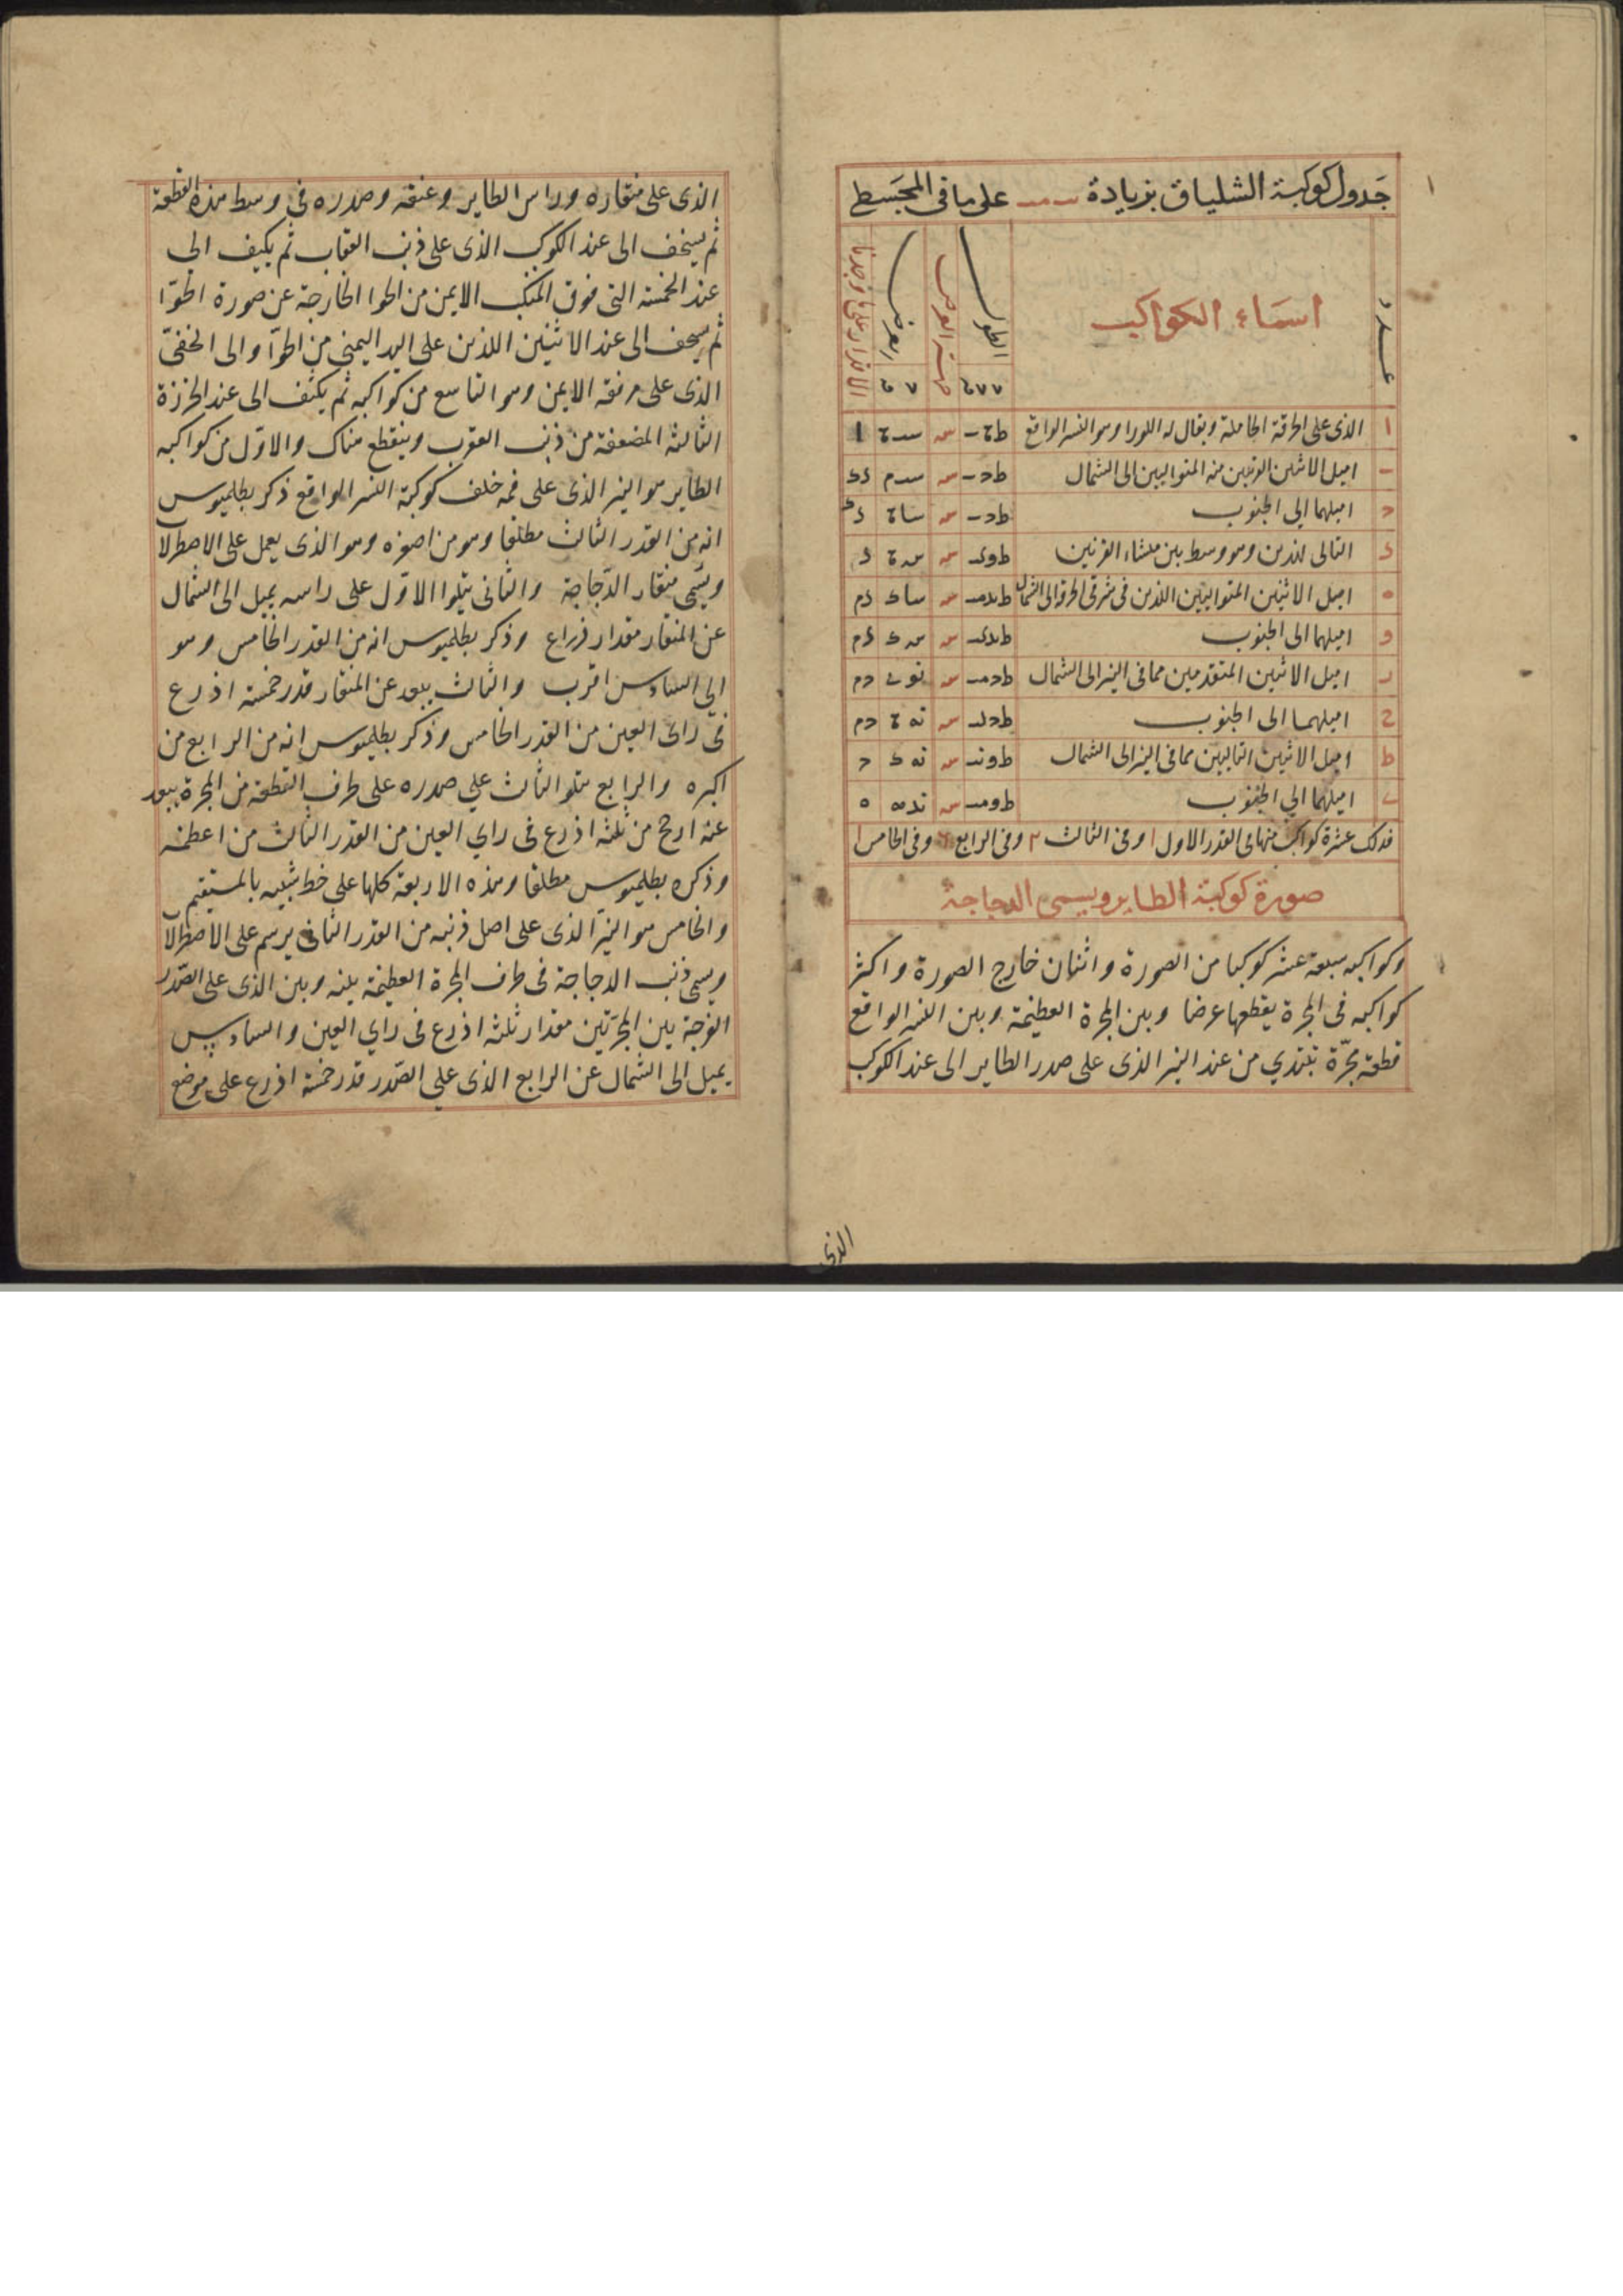 جدول كوكبة الشلياق بزيادة على ما فى المجسطى
عدد
اسماء الكواكب
الطول
جهة العرض
العرض
الاقدار على ما وجدنا
ا الذى على الخرقة الحاملة ويقال له اللورا وهو النسر الواقع
اميل الاثنين القريبين منه المتواليين الى الشمال
اميلهما الى الجنوب
التالى لهذين وهو وسط بين منشاء القرنين
اميل الاثنين المتواليين اللذين فى شرقى الخرقة الى الشمال
و اميلهما الى الجنوب
اميل الاثنين المتقدمين مما فى النير الى الشمال
ح اميلهما الى الجنوب
ط اميل الاثنين التاليين مما فى النير الى الشمال
اميلهما الى الجنوب
فذلك عشرة كواكب منها فى القدر الاول ا وفى الثالث ٢ وفى الرابع وفى الخامس ا
صورة كوكبة الطاير ويسمى الدجاجة
وكواكبه سبعة عشر كوكبا من الصورة واثنان خارج الصورة واكثر
كواكبه فى المجرة يقطعها عرضا وبين المجرة العظيمة وبين النسر الواقع
قطعة مجرّة تبتدي من عند النير الذى على صدر الطاير الى عند الكوكب
الذى
الذى على منقاره وراس الطاير وعنقه وصدره فى وسط هذه القطعة
ثم يسخف الى عند الكوكب الذى على ذنب العقاب ثم يكيف الى
عند الخمسة التى فوق المنكب الايمن من الحوا الخارجة عن صورة الحوّا
ثم يسخف الى عند الاثنين اللذين على اليد اليمنى من الحوّا والى الخفىّ
الذى على مرفقه الايمن وهو التاسع من كواكبه ثم يكثف الى عند الخرزة
الثالثة المضعفة من ذنب العقرب وينقطع هناك والاوّل من كواكبه
الطاير هو النير الذى على فمه خلف كوكبة النسر الواقع ذكر بطلميوس
انه من القدر الثالث مطلقا وهو من اصغره وهو الذى يعمل على الاصطرلا
ويسمّى منقار الدّجاجة والثانى يتلوا الاوّل على راسه يميل الى الشمال
عن المنقار مقدار ذراع وذكر بطلميوس انه من القدر الخامس وهو
الى السادس اقرب والثالث يبعد عن المنقار قدر خمسة اذرع
فى راى العين من القدر الخامس وذكر بطلميوس انه من الرابع من
اكبره والرابع يتلو الثالث على صدره على طرف القطعة من المجرة يبعد
عنه ارجح من ثلثة اذرع فى راي العين من القدر الثالث من اعظمه
وذكره بطلميوس مطلقا وهذه الاربعة كلها على خط شبيه بالمستقيم
والخامس هو النيّر الذى على اصل ذنبه من القدر الثانى يرسم على الاصطرلا
ويسمى ذنب الدجاجة فى طرف المجرة العظيمة بينه وبين الذى على الصّدر
الفرجة بين المجرّتين مقدار ثلثة اذرع فى راي العين والسادس
يميل الى الشمال عن الرابع الذى على الصّدر قدر خمسة اذرع على موضع